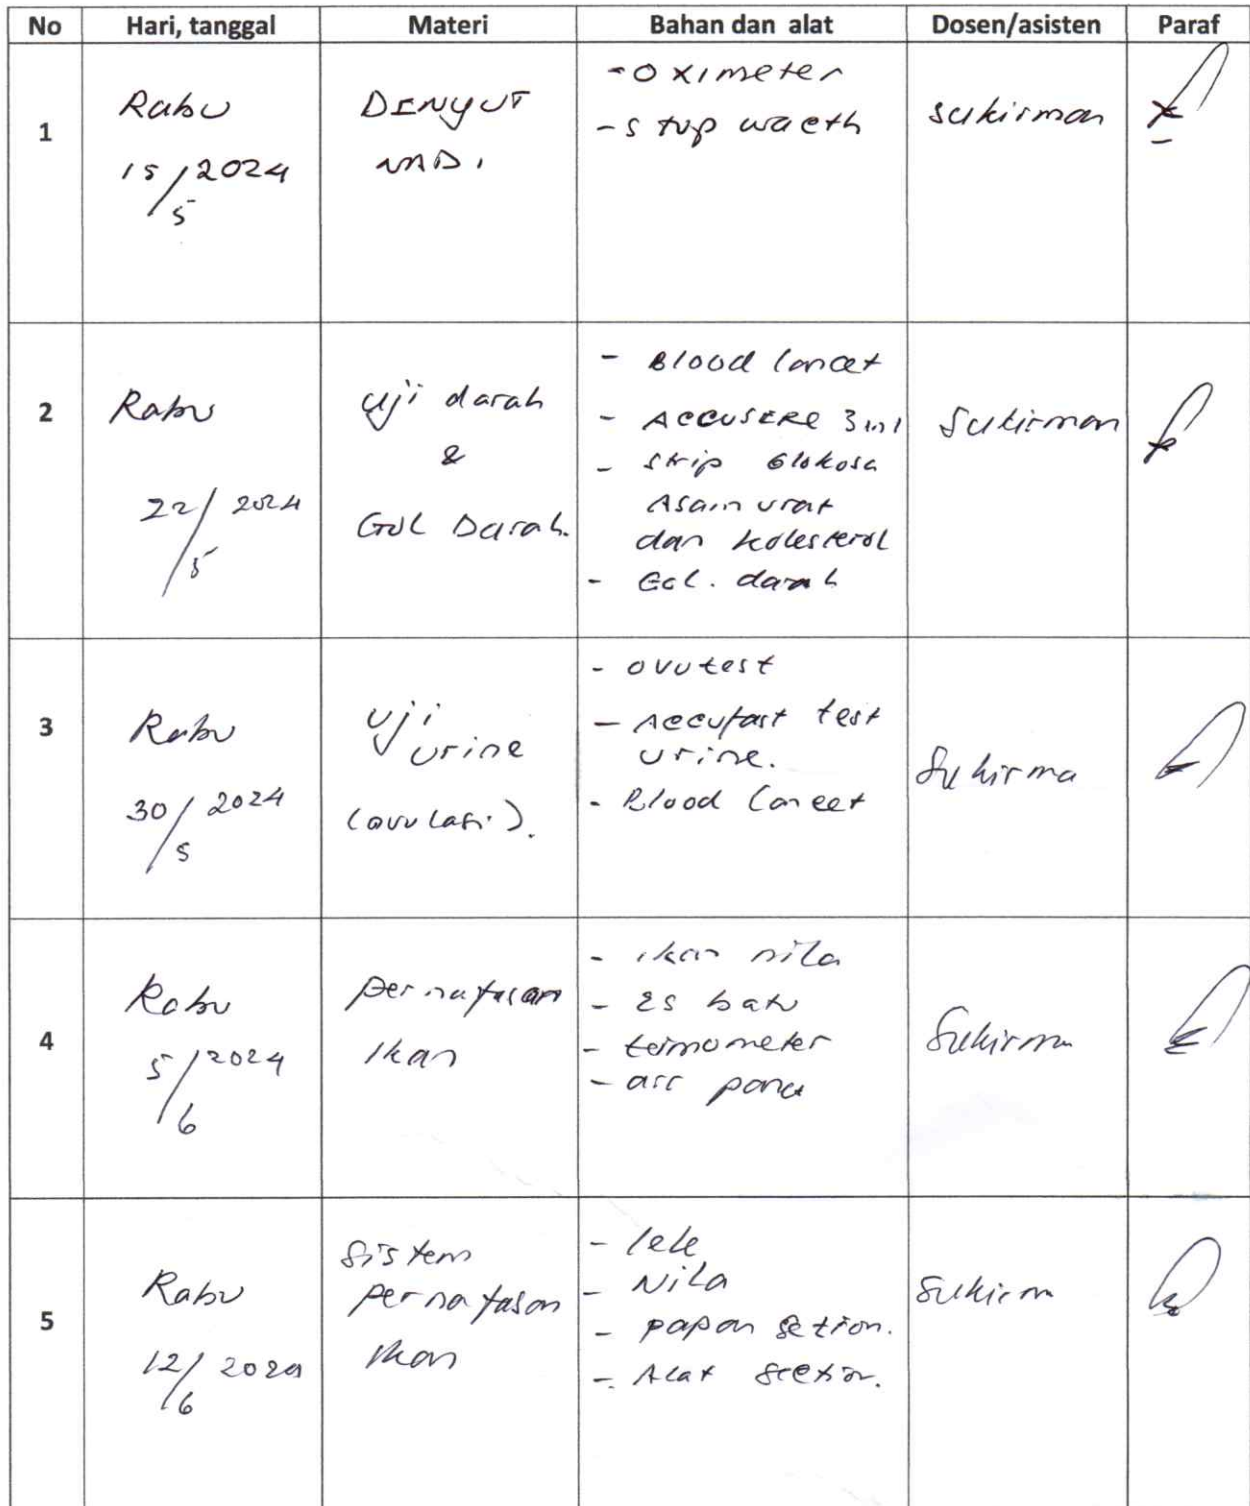 No Hari, tanggal Materi Bahan dan alat Dosen/asisten Paraf
1
Rabu
15/5 2024
DENYUT
NADI
- Oximeter
- stop wacth
sukirman
2
Rabu
22/5 2024
Uji darah
&
Gol Darah.
- Blood lancet
- ACCUSERE 3 in 1
- strip Glokosa
Asam urat
dan kolesterol
- Gol. darah
Sukirman
3
Rabu
30/5 2024
Uji
urine
(ovulasi).
- ovutest
- Accufast test
urine.
- Blood lancet
Sukirma
4
Rabu
5/6 2024
pernafasan
Ikan
- ikan nila
- Es batu
- termometer
- air panas
Sukirman
5
Rabu
12/6 2024
Sistem
pernafasan
Ikan
- lele
- Nila
- papan section.
- Alat section.
Sukirm